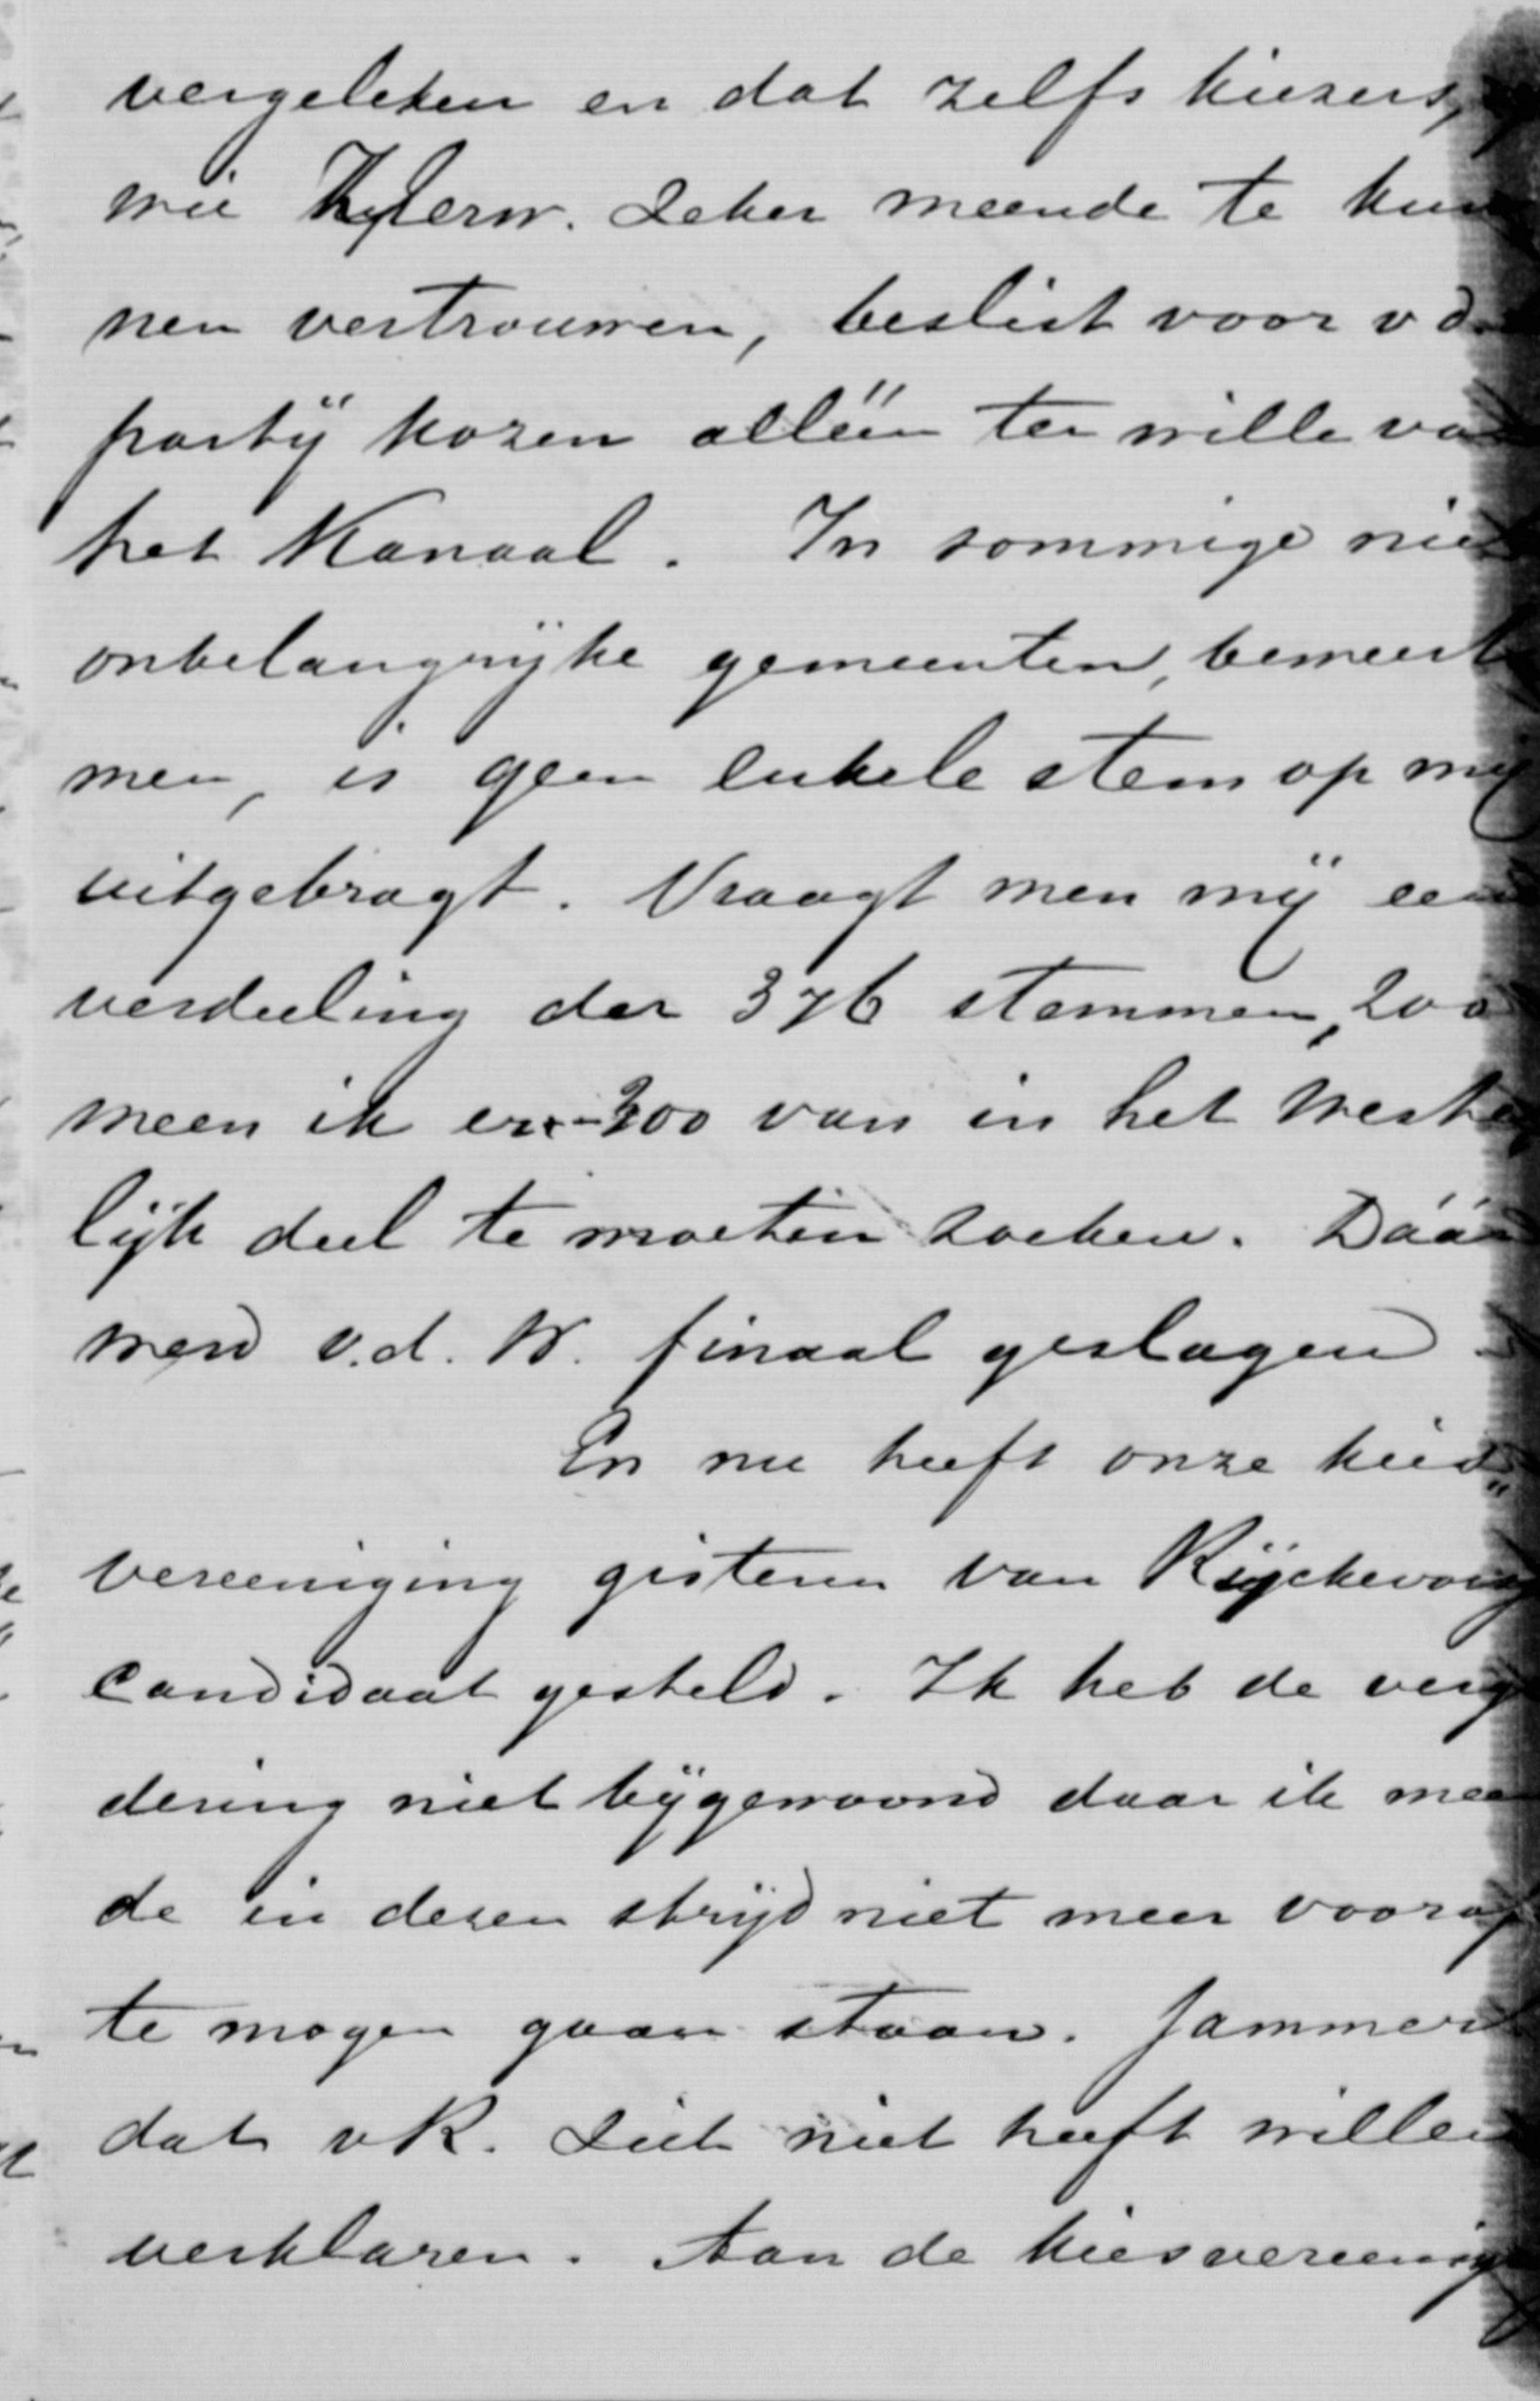 vergeleken en dat zelfs kiezers,
wie Zeker meende te kun
nen vertrouwen, beslist voor v d
partÿ kozen alléén ter wille va
het Kanaal. In sommige niet
onbelangrÿke gemeenten, beweert
men, is geen enkele stem op mÿ
uitgebragt. Vraagt men mÿ een
verdeeling der 376 stemmen, zoo
meen ik er 300 van in het Weste
lÿk deel te moeten zoeken. Dáár
werd v.d. W. finaal geslagen
En nu heeft onze kies"
vereeniging gisteren van Rÿckevors
Candidaat gesteld. Ik heb de verga
dering niet bÿgewoond daar ik meen
de in dezen strÿd niet meer voorop
te mogen gaan staan. Jammer
dat vR. Zich niet heeft willen
verklaren. Aan de kiesvereenig